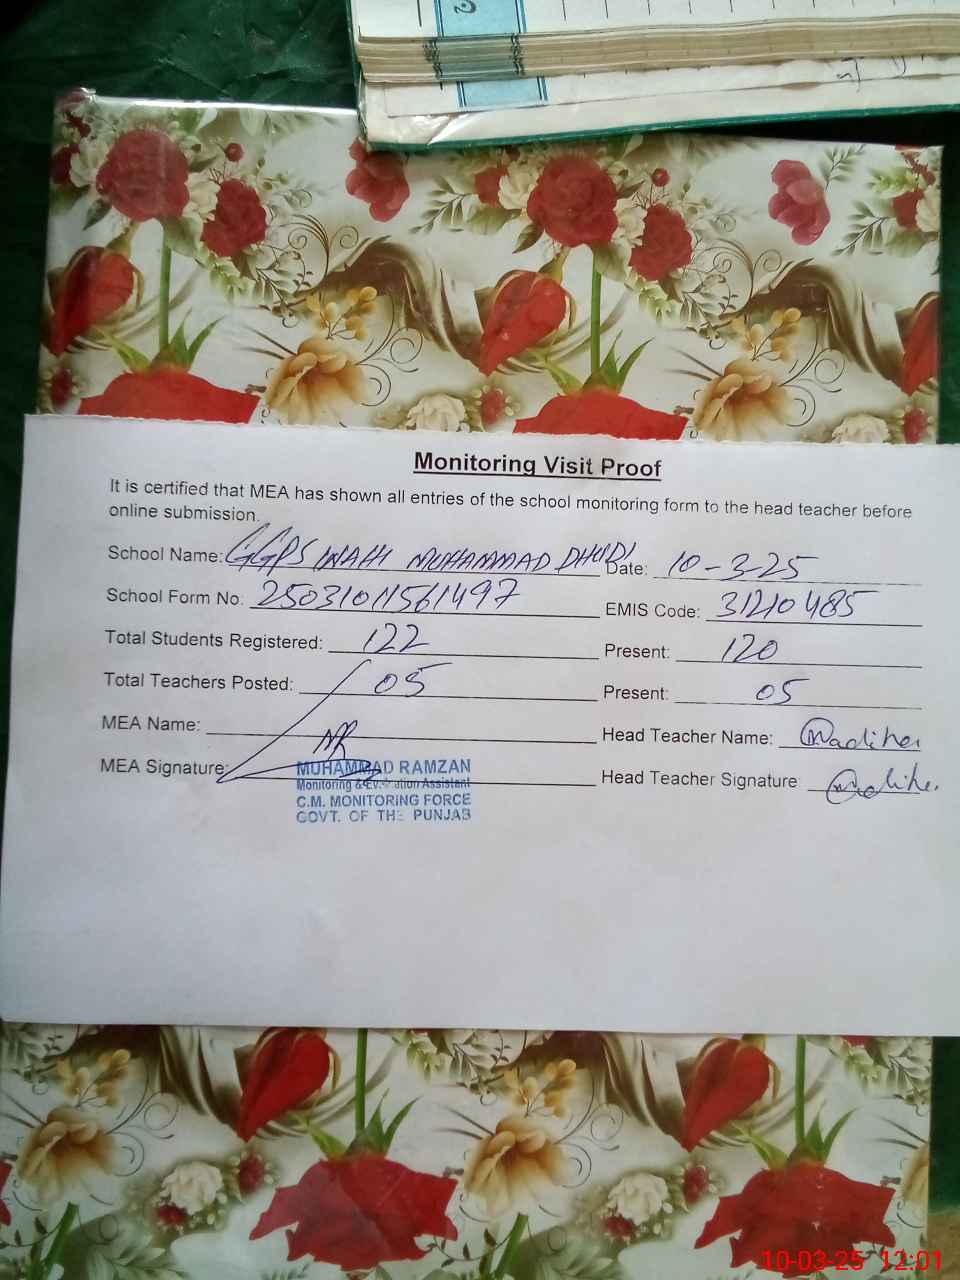 Monitoring Visit Proof
It is certified that MEA has shown all entries of the school monitoring form to the head teacher before
online submission.
School Name: GGPS WAHI MUHAMMAD DHUDI Date: 10-3-25
School Form No: 25031011561497 EMIS Code: 31210485
Total Students Registered: 122 Present: 120
Total Teachers Posted: 05 Present: 05
MEA Name: Head Teacher Name: Nadiha
MEA Signature: Head Teacher Signature:
MUHAMMAD RAMZAN
Monitoring & Evaluation Assistant
C.M. MONITORING FORCE
GOVT. OF THE PUNJAB
10-03-25 12:01